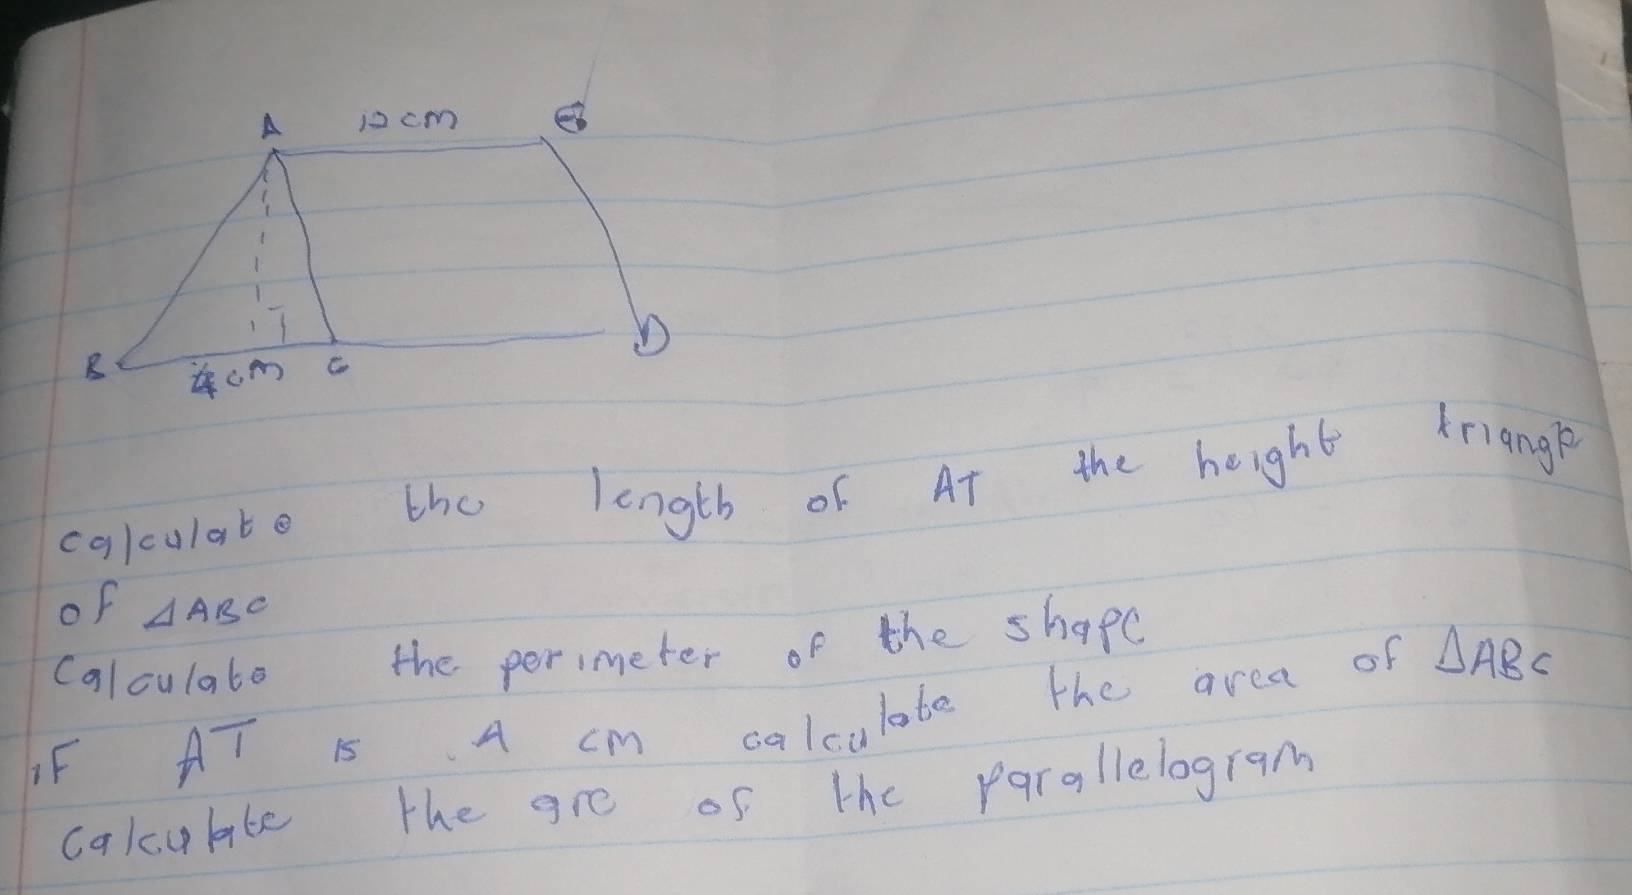 A 12 cm
B 4 cm C D
calculate the length of AT the height triangle
of △ABC
Calculate the perimeter of the shape
if AT is A cm calculate the area of △ABC
calculate the are of the parallelogram